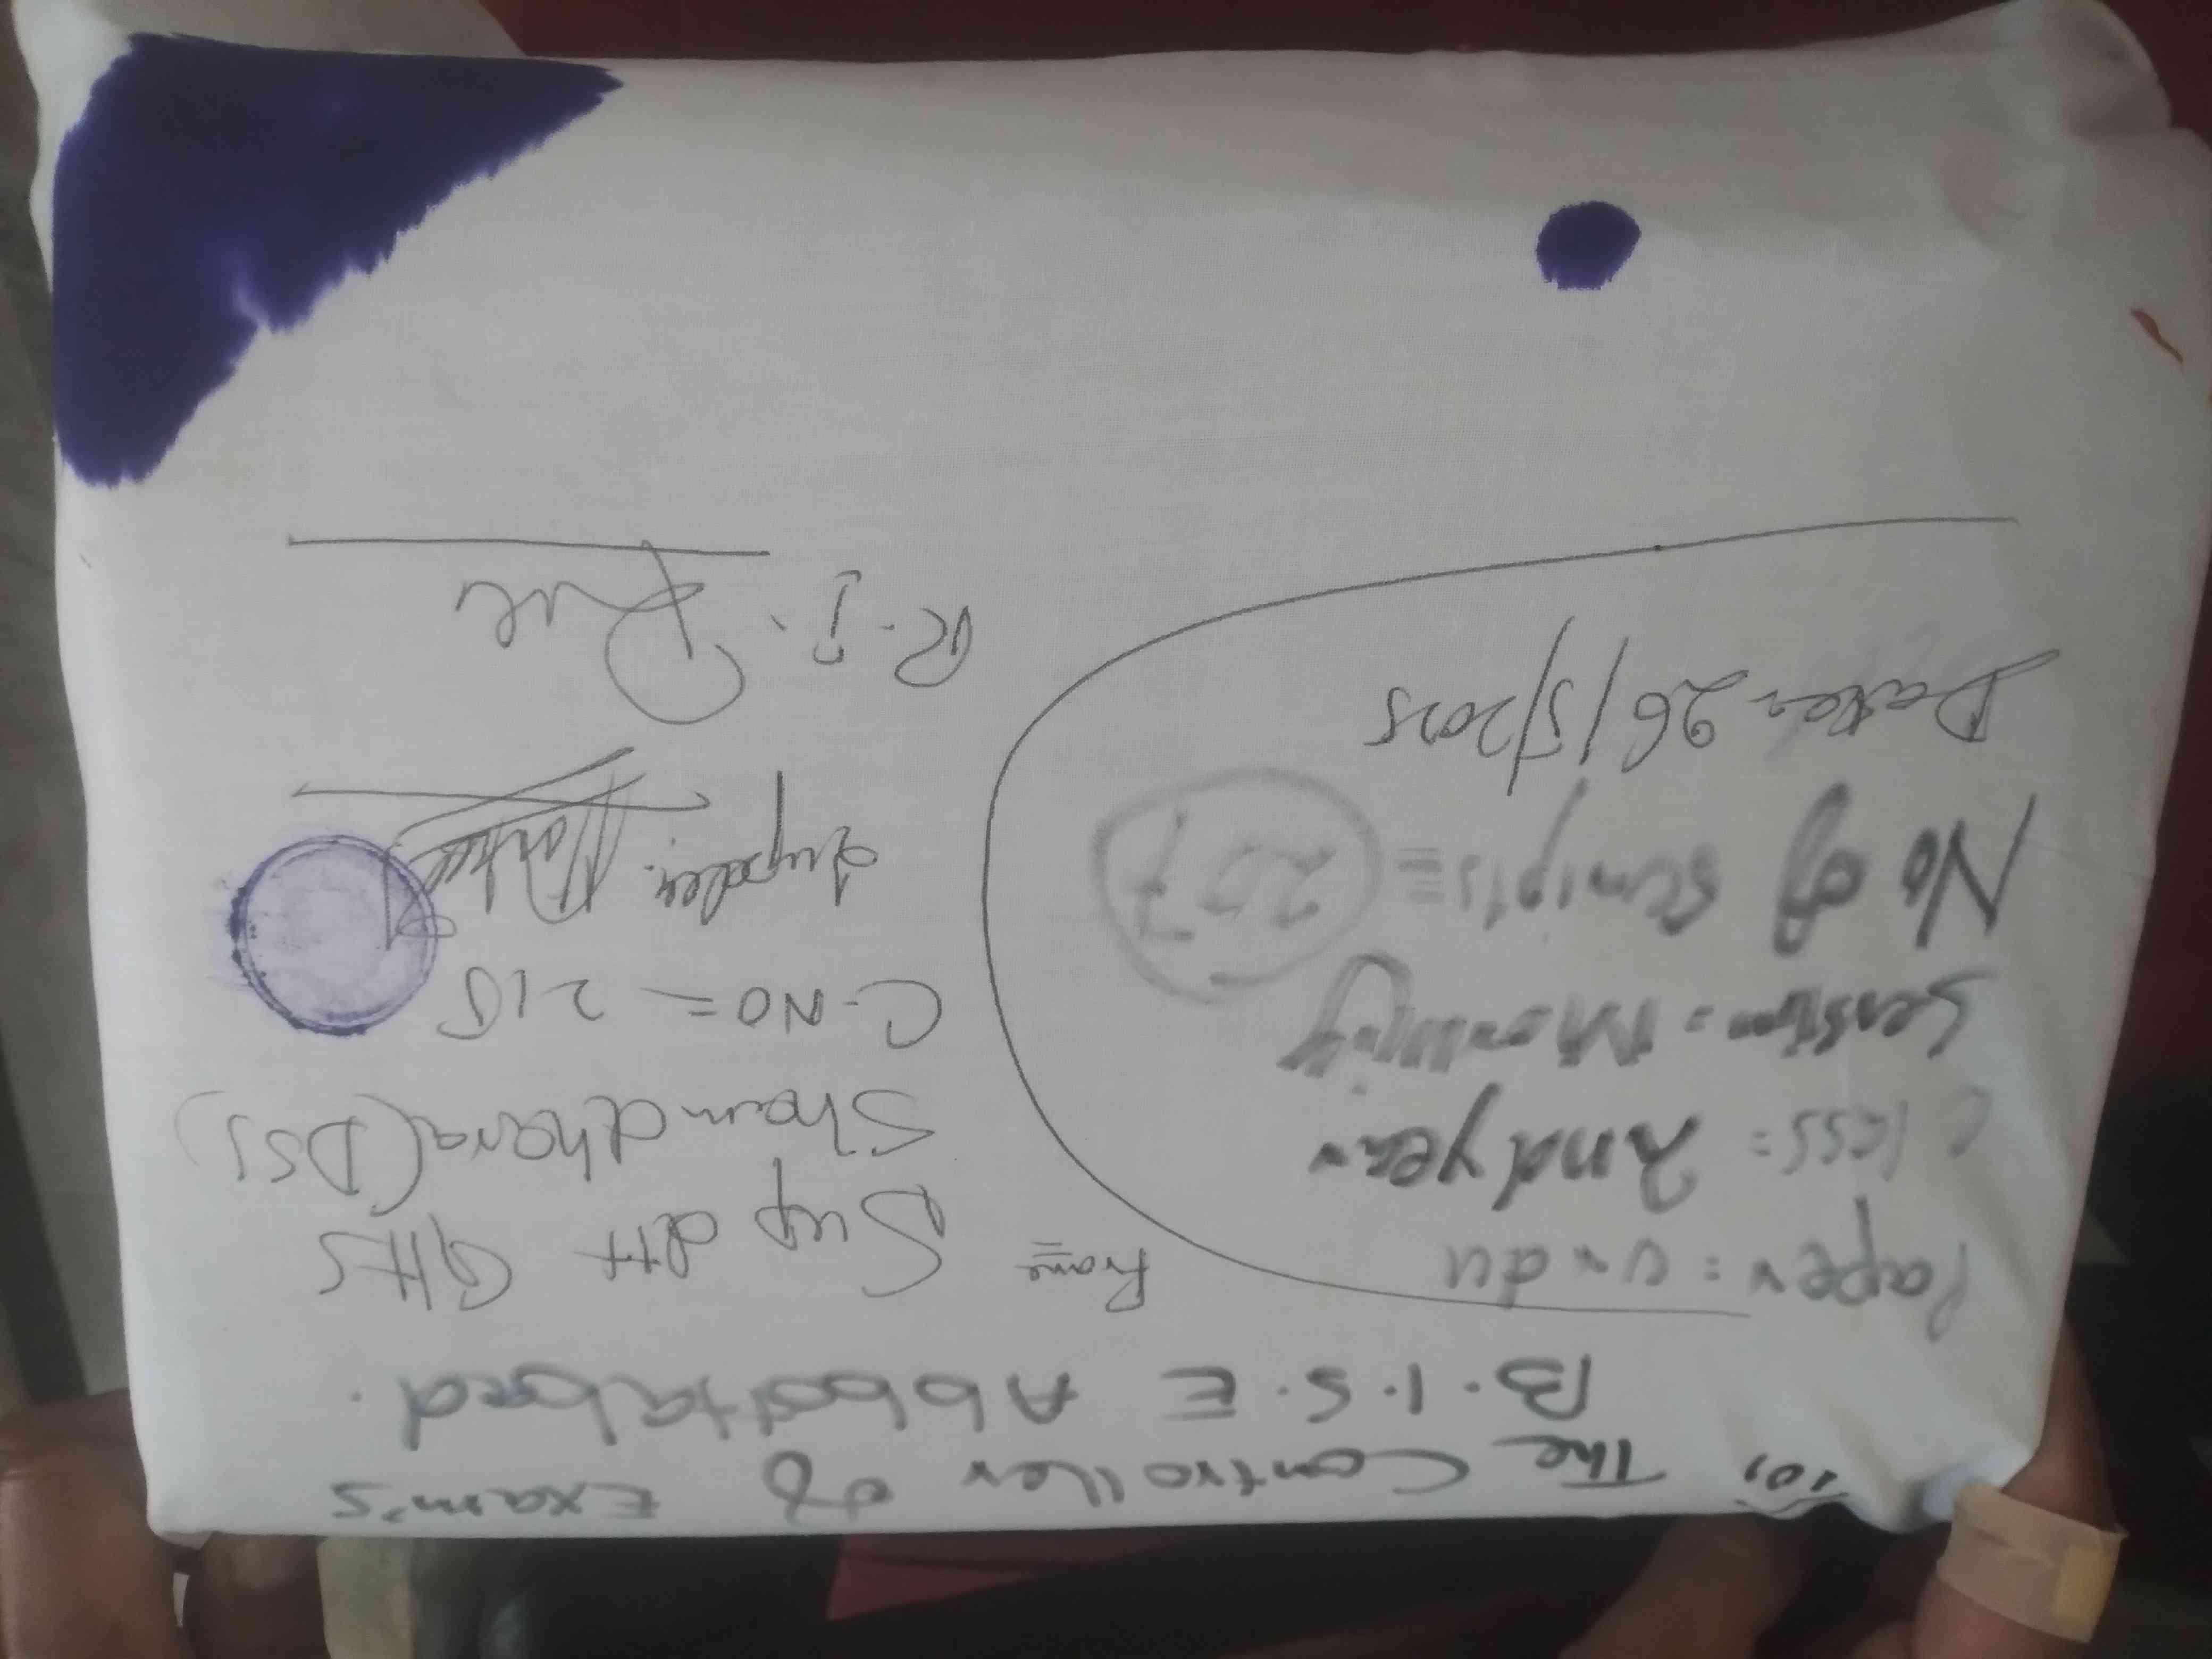 To, The Controller of Exam's
B.I.S.E Abbottabad.
Paper = Urdu
Class = 2nd year
Session = Morning
No of scripts = 207
Date = 26/5/2025
From =
Sup dtt GHS
Sham dhara (DSS)
C-NO = 215
Supdtt.
R.I.